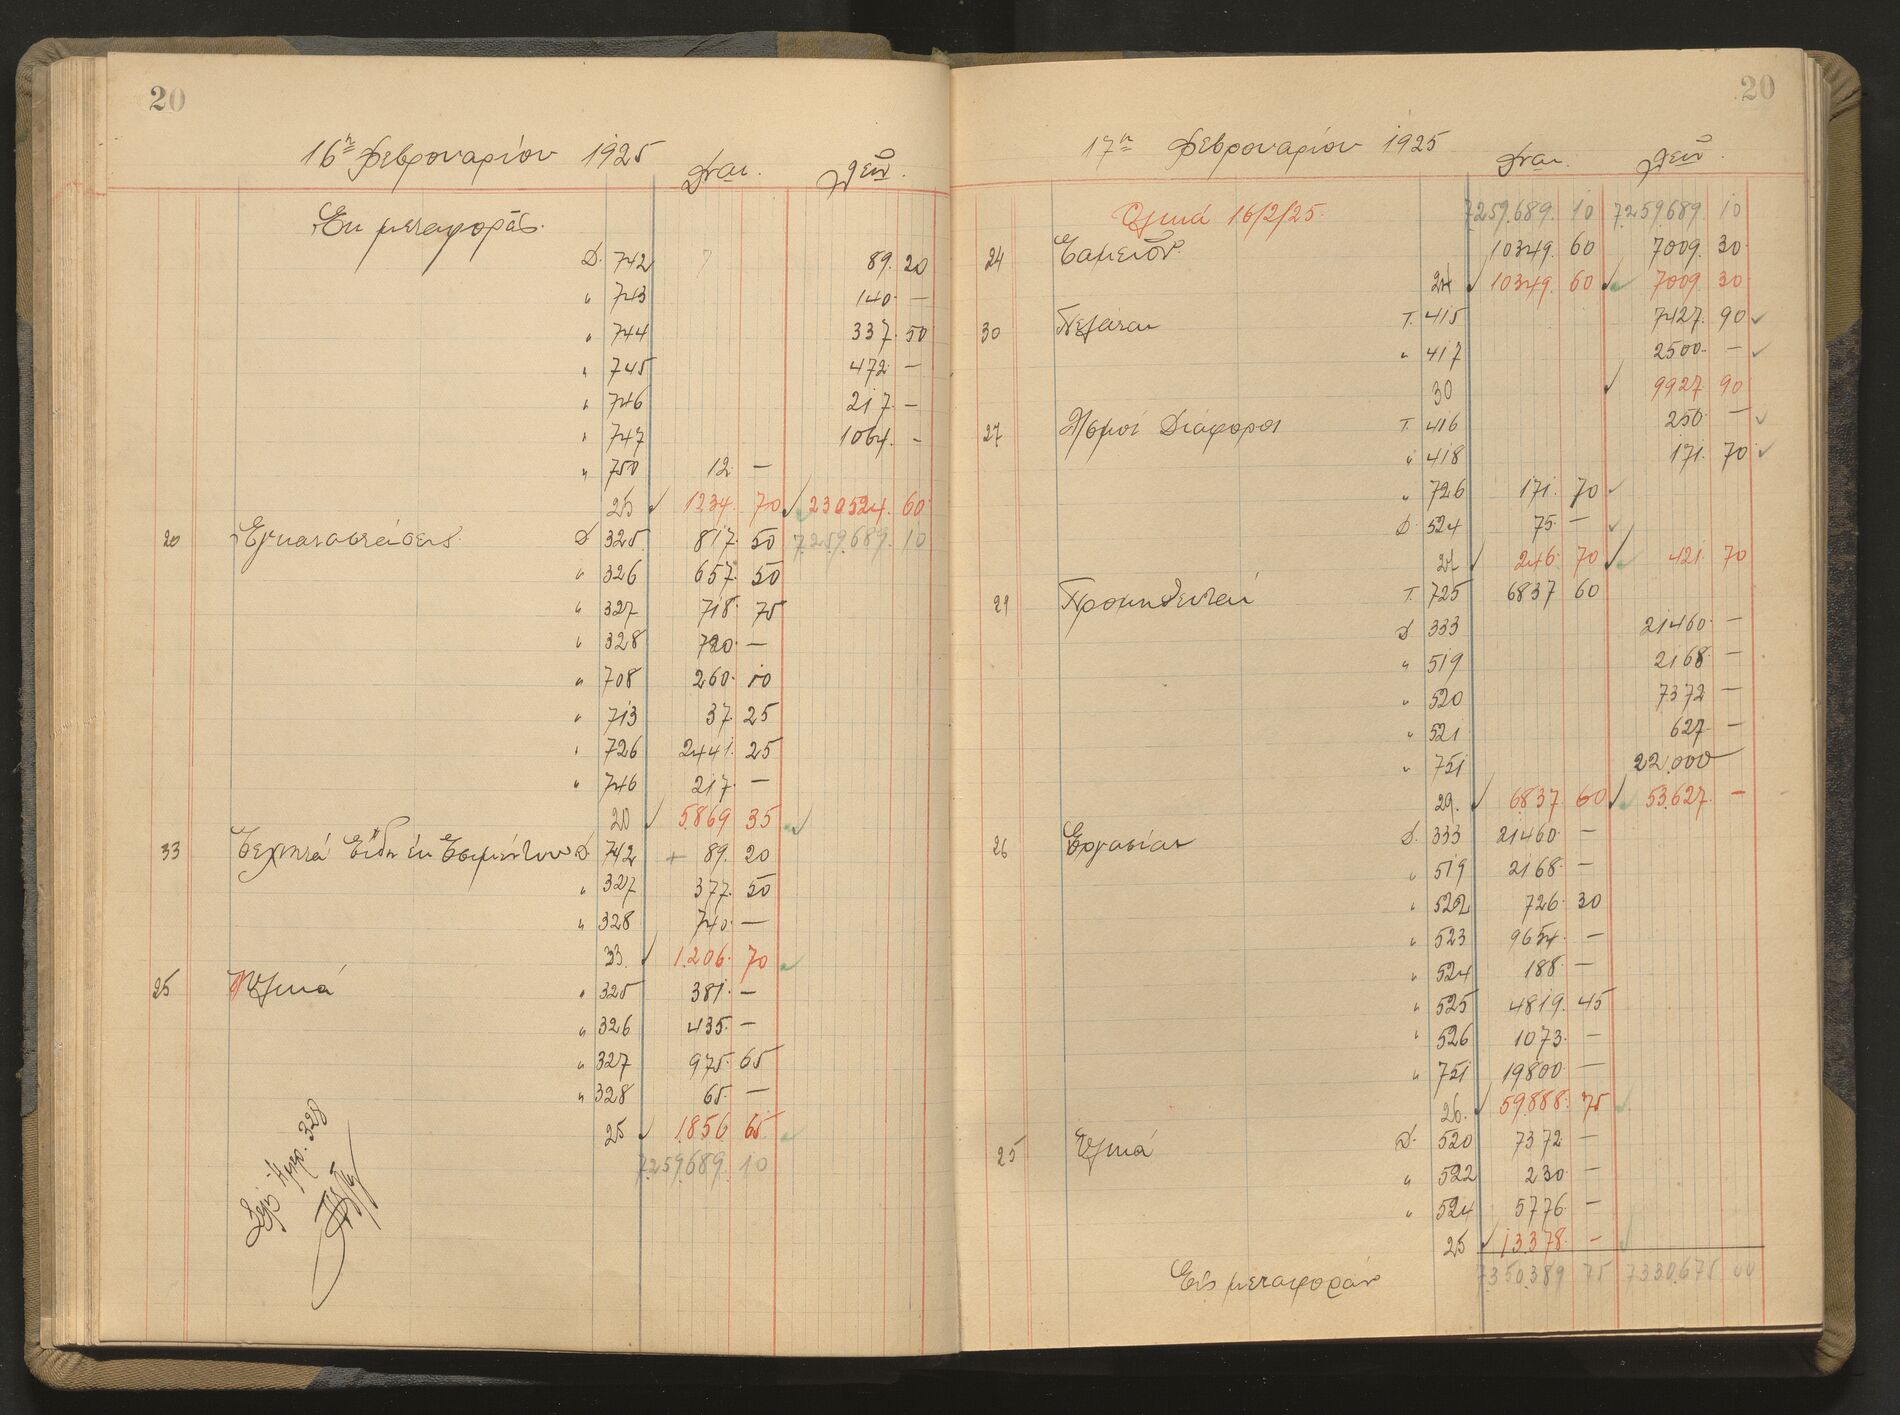 20
16η Φεβρουαρίου 1925
Εκ μεταφοράς.
Δ. 742 89. 20
" 743 140. —
" 744 337. 50
" 745 472 —
" 746 217. —
" 747 1064. —
" 750 12 —
25 1234. 70 230524. 60
20 Εγκαταστάσεις Δ 325. 817. 50 7.259.689. 10
" 326 657. 50
" 327 718. 75
" 328 720. —
" 708 260. 10
" 713 37. 25
" 726 2441. 25
" 746 217. —
20 5.869 35
33 Τεχνητά Είδη έκ Τσιμέντου Δ. 742 + 89. 20
" 327 377. 50
" 328 740. —
33. 1.206. 70
25 Υλικά " 325 381. —
" 326 435. —
" 327 975. 65
" 328 65. —
25 1.856. 65
7.259.689. 10
328
20
17η Φεβρουαρίου 1925
Ολικά 16/2/25. 7.259.689. 10 7.259.689. 10
24 Ταμείον. 10349. 60 7009. 30
24 10349. 60 7009. 30
30 Πελάται Τ. 415 7427. 90
" 417 2500. —
30 9927. 90
27 Λ/σμοί Διάφοροι Τ. 416 250. —
" 418 171. 70
" 726 171. 70
Δ. 524 75. —
27 246. 70 421. 70
29 Προμηθευταί Τ. 725 6837 60
Δ 333 21460. —
" 519 2168. —
" 520 7372 —
" 521 627. —
" 751 22.000
29. 6837. 60 53.627. —
26 Εργασίαι Δ. 333 21460. —
" 519 2168. —
" 522 726. 30
" 523 9654. —
" 524 188. —
" 525 4819. 45
" 526 1073. —
" 751 19800. —
26. 59.888. 75
25 Υλικά Δ. 520 7372. —
" 522 230. —
" 524 5776. —
25 13.378. —
Εις μεταφοράν 7.350.389 75 7.330.675 00